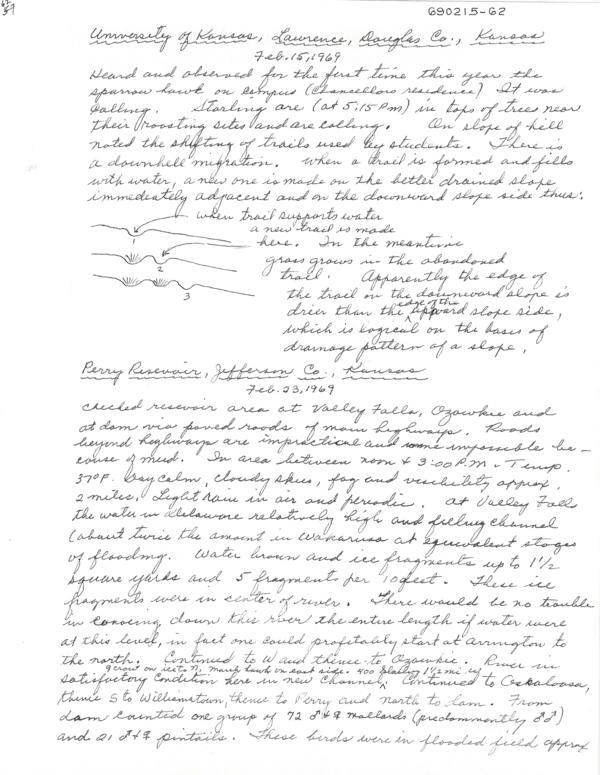 690215-62
University of Kansas, Lawrence, Douglas Co., Kansas
Feb. 15, 1969
Heard and observed for the first time this year the
sparrow hawk on campus (Chancellors residence) It was
calling. Starling are (at 5:15 PM) in tops of trees near
their roosting sites and are calling. On slope of hill
noted the shifting of trails used by students. There is
a downhill migration. When a trail is formed and fills
with water, a new one is made on the better drained slope
immediately adjacent and on the downward slope side thus:
when trail supports water
a new trail is made
here. In the meantime
grass grows in the abandoned
trail. Apparently the edge of
the trail on the downward slope is
drier than the edge of the upward slope side,
which is logical on the basis of
drainage pattern of a slope.
1
2
3
Perry Resevoir, Jefferson Co., Kansas
Feb. 23, 1969
Checked resevoir area at Valley Falls, Ozawkie and
at dam via paved roads of main highways. Roads
beyond highways are impractical and some impossible be-
cause of mud. In area between noon & 3:00 P.M. - Temp.
37°F. Day calm, cloudy skies, fog and visibility approx.
2 miles, Light rain in air and periodic. At Valley Falls
the water in Delaware relatively high and filling channel
(about twice the amount in Wakarusa at equivalent stages
of flooding. Water brown and ice fragments up to 1 1/2
square yards and 5 fragment per 10 feet. These ice
fragments were in center of river. There would be no trouble
in canoeing down this river the entire length if water were
at this level, in fact one could profitably start at Arrington to
the north. Continued to W and thence to Ozawkie. River in
9 crow on way, marsh hawk on each side. 400 1 1/2 mi.
satisfactory condition here in new channel. Continued to Oskaloosa,
thence S to Williamstown, thence to Perry and north to dam. From
dam counted one group of 72 ♂+♀ mallards (predominantly ♂♂)
and 21 ♂+♀ pintails. These birds were in flooded field approx